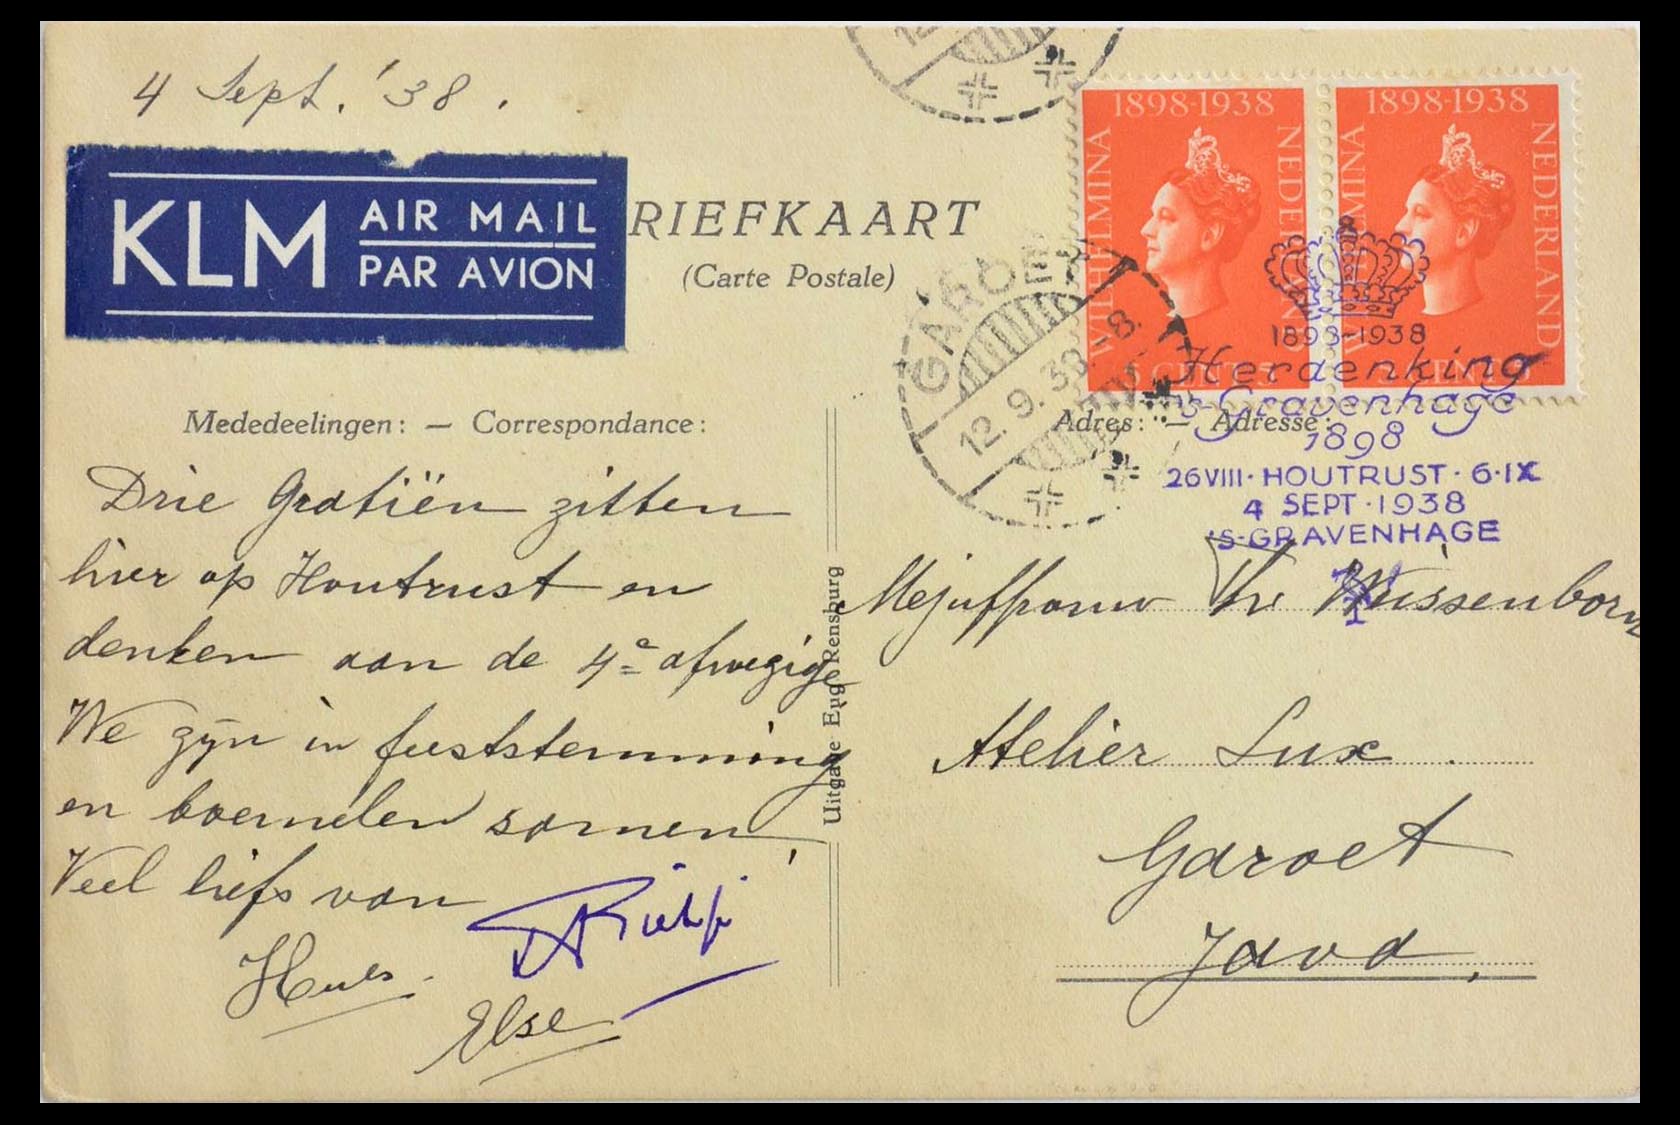 4 Sept. '38.
KLM
AIR MAIL
PAR AVION
RIEFKAART
(Carte Postale)
1898-1938
WILHELMINA
NEDERLAND
5 CENTS
1898-1938
WILHELMINA
NEDERLAND
GAROET
12.9.38. 8.
1898-1938
Herdenking
's-Gravenhage
1898
26 VIII · HOUTRUST · 6·IX
4 SEPT · 1938
'S-GRAVENHAGE
1
Mededeelingen: — Correspondance:
Adres: — Adresse:
Drie Gratiën zitten
hier op Houtrust en
denken aan de 4e afwezige
We zijn in feeststemming
en boemelen samen,
Veel liefs van
Else
Uitgave Eug Rensburg
Mejuffrouw Weissenborn
Atelier Lux
Garoet
Java.